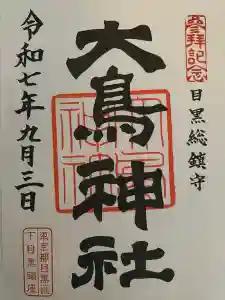 參拝記念
目黒総鎮守
大鳥神社
令和七年九月三日
東京都目黒區
下目黒鎮座